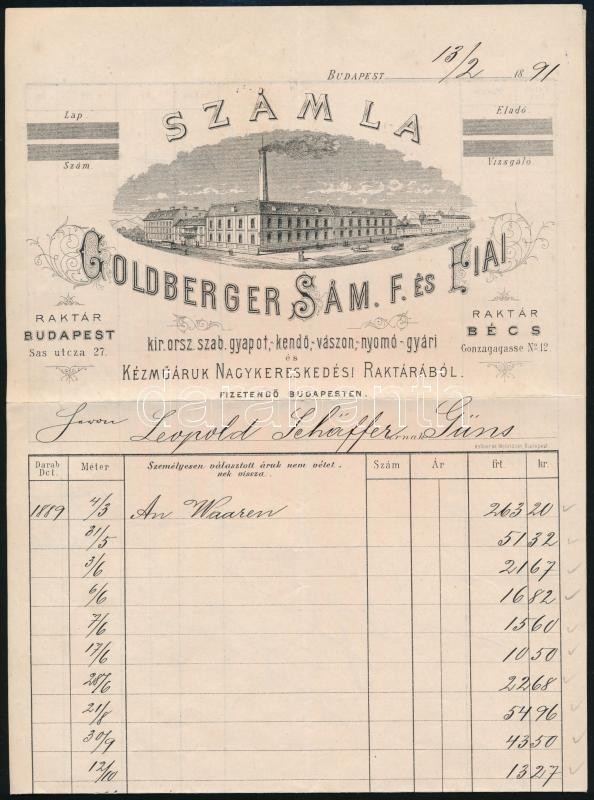 BUDAPEST 13/2 1891
Lap
Szám.
SZÁMLA
Eladó
Vizsgáló
GOLDBERGER SÁM. F. ÉS FIAI
RAKTÁR
BUDAPEST
Sas utcza 27.
RAKTÁR
BÉCS
Gonzagagasse No 12.
kir. orsz. szab. gyapot,- kendő,- vászon,- nyomó - gyári
és
KÉZMŰÁRUK NAGYKERESKEDÉSI RAKTÁRÁBÓL.
FIZETENDŐ BUDAPESTEN.
darabanth
Herrn Leopold Schäffer urnak Güns
Darab Dct. Méter Személyesen választott áruk nem vétet- Szám Ár frt. kr.
nek vissza.
1889 4/3 An Waaren 263 20
31/5 51 32
3/6 21 67
6/6 16 82
7/6 15 60
17/6 10 50
28/6 22 68
21/8 54 96
30/9 43 50
12/10 13 27